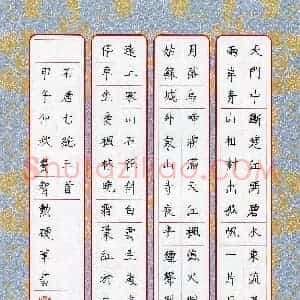 天門中斷楚江開碧水東流
兩岸青山相對出孤帆一片
月落烏啼霜滿天江楓漁火
姑蘇城外寒山寺夜半鐘聲
遠上寒山石徑斜白雲生
停車坐愛楓林晚霜葉紅於
右唐七絕三首
甲午仲秋硬筆書
Shufazidao.com